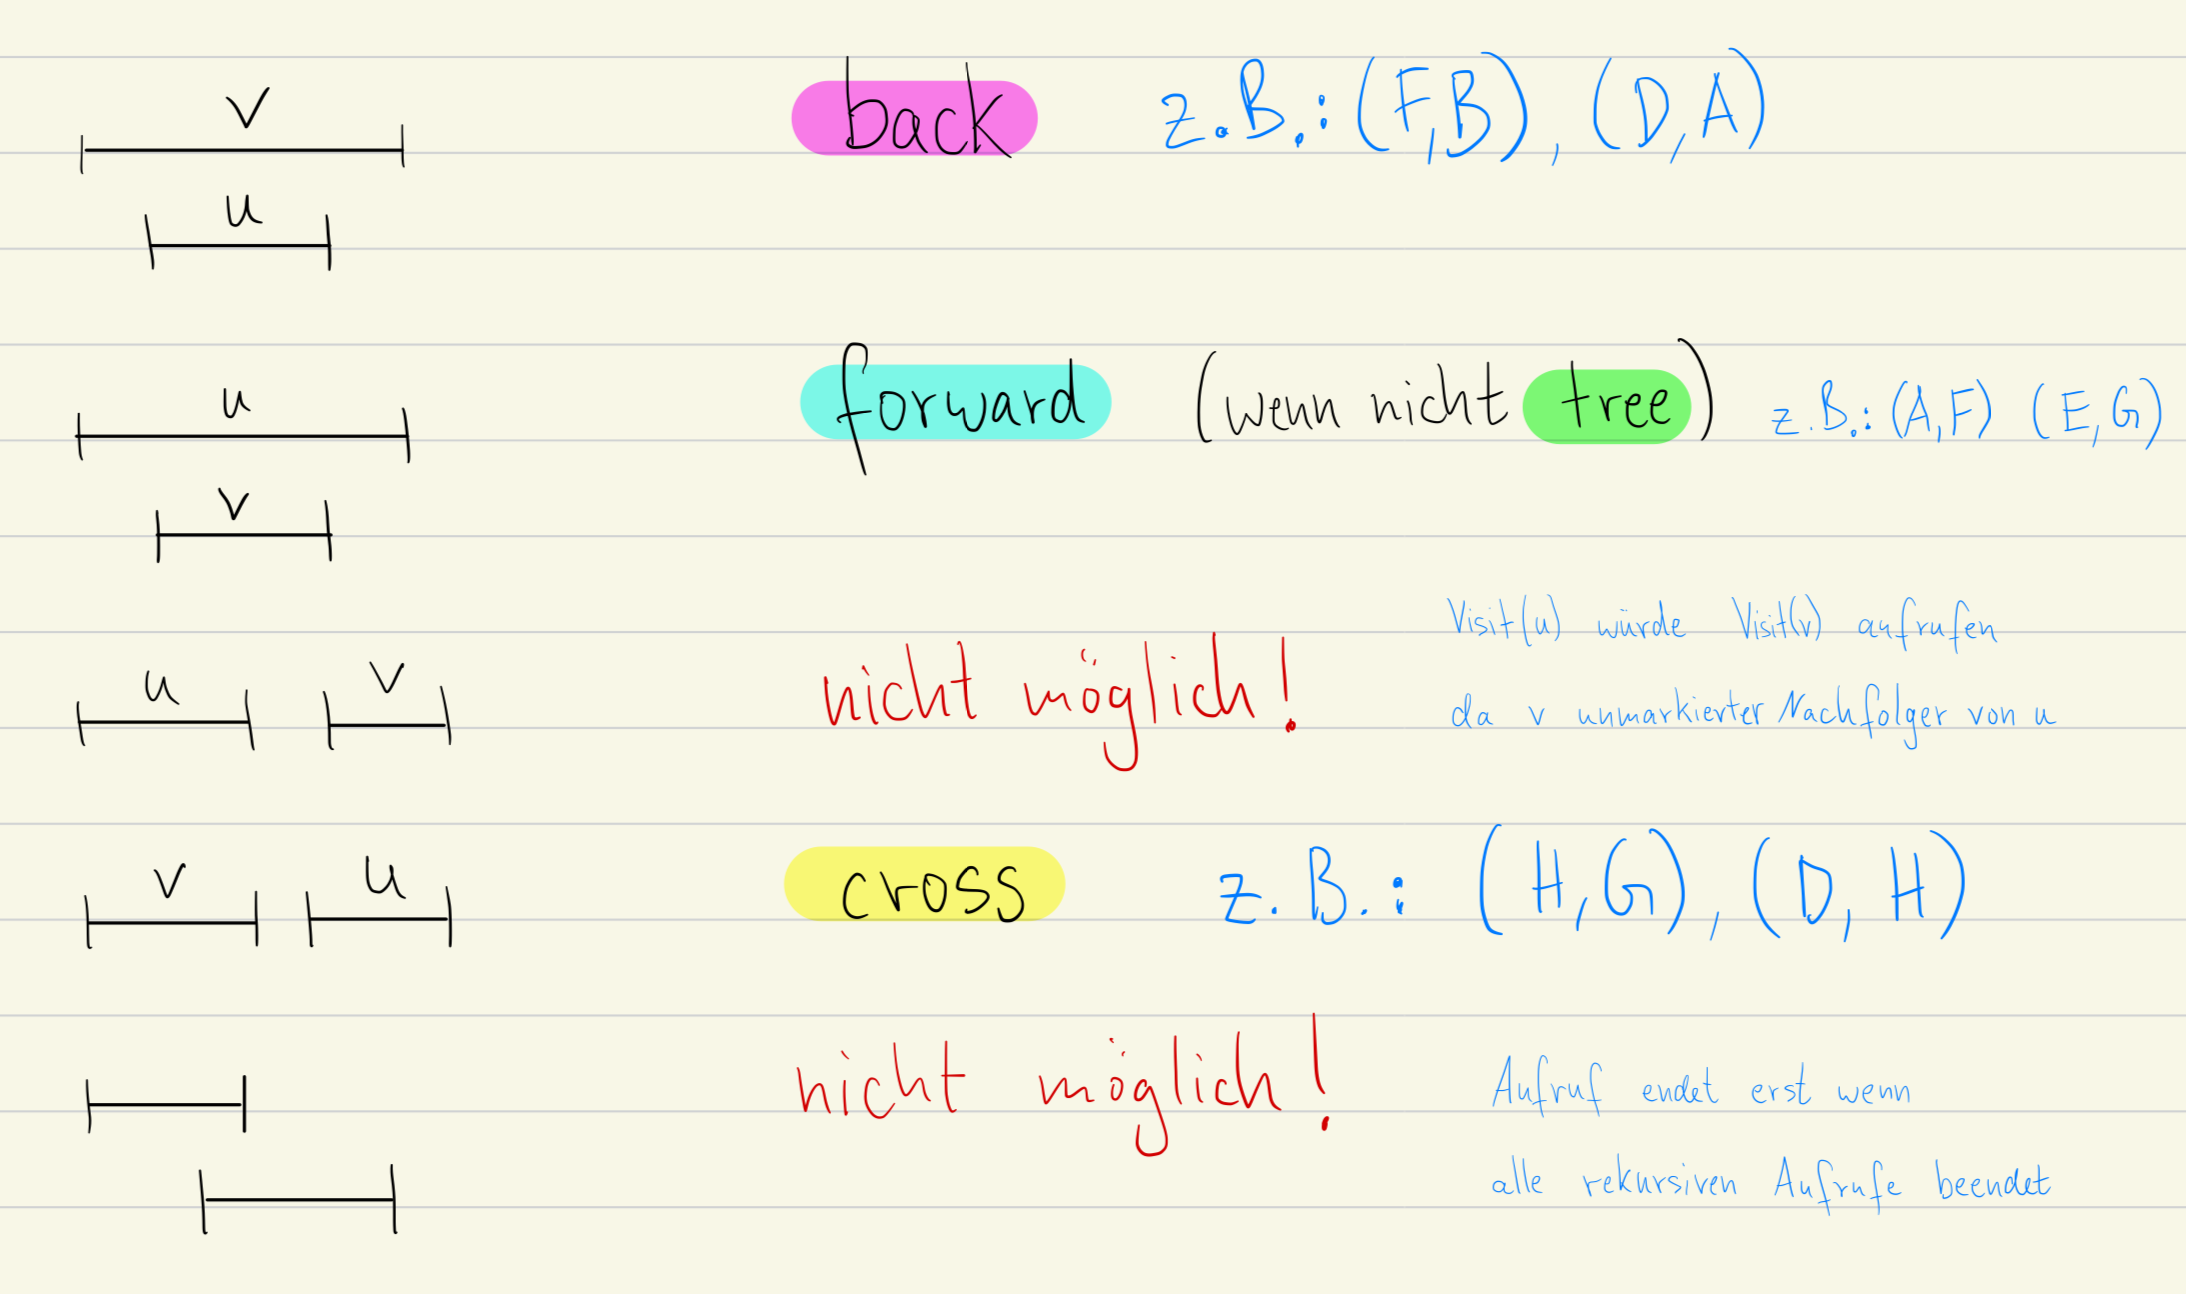 v back z.B.: (F,B), (D,A)
u
u forward (wenn nicht tree) z.B.: (A,F) (E,G)
v
Visit(u) würde Visit(v) aufrufen
u v nicht möglich!
da v unmarkierter Nachfolger von u
v u cross z.B.: (H,G), (D,H)
nicht möglich! Aufruf endet erst wenn
alle rekursiven Aufrufe beendet